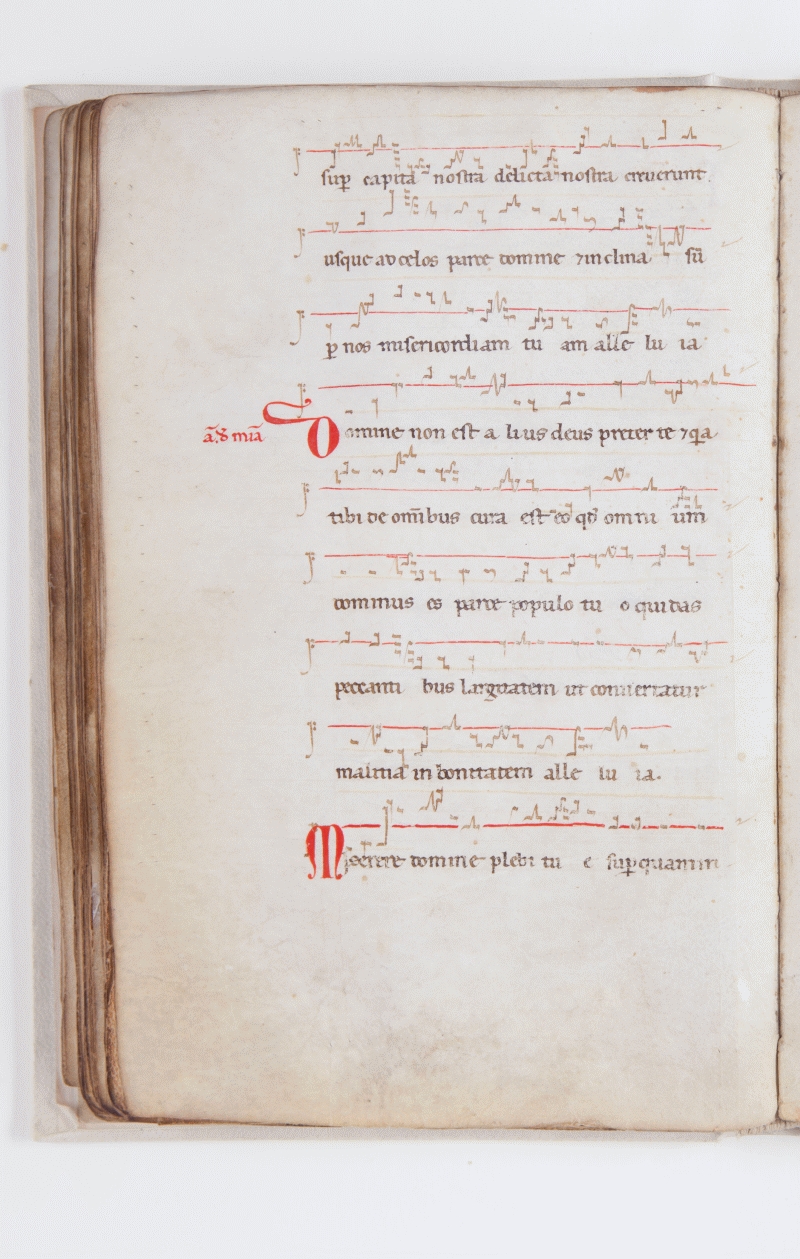 sup̄ capita nostra delicta nostra creuerunt.
usque ad celos parce domine ⁊ inclina sū
p̱ nos misericordiam tu am alle lu ia
ā. d̄ mīa Domine non est a lius deus preter te ⁊ q̄a
tibi de om̄ibus cura est eo qđ omni um
dominus es parce populo tu o qui das
peccanti bus largitatem ut conuertatur
malitia in bonitatem alle lu ia.
Miserere domine plebi tu e sup̱ quam in